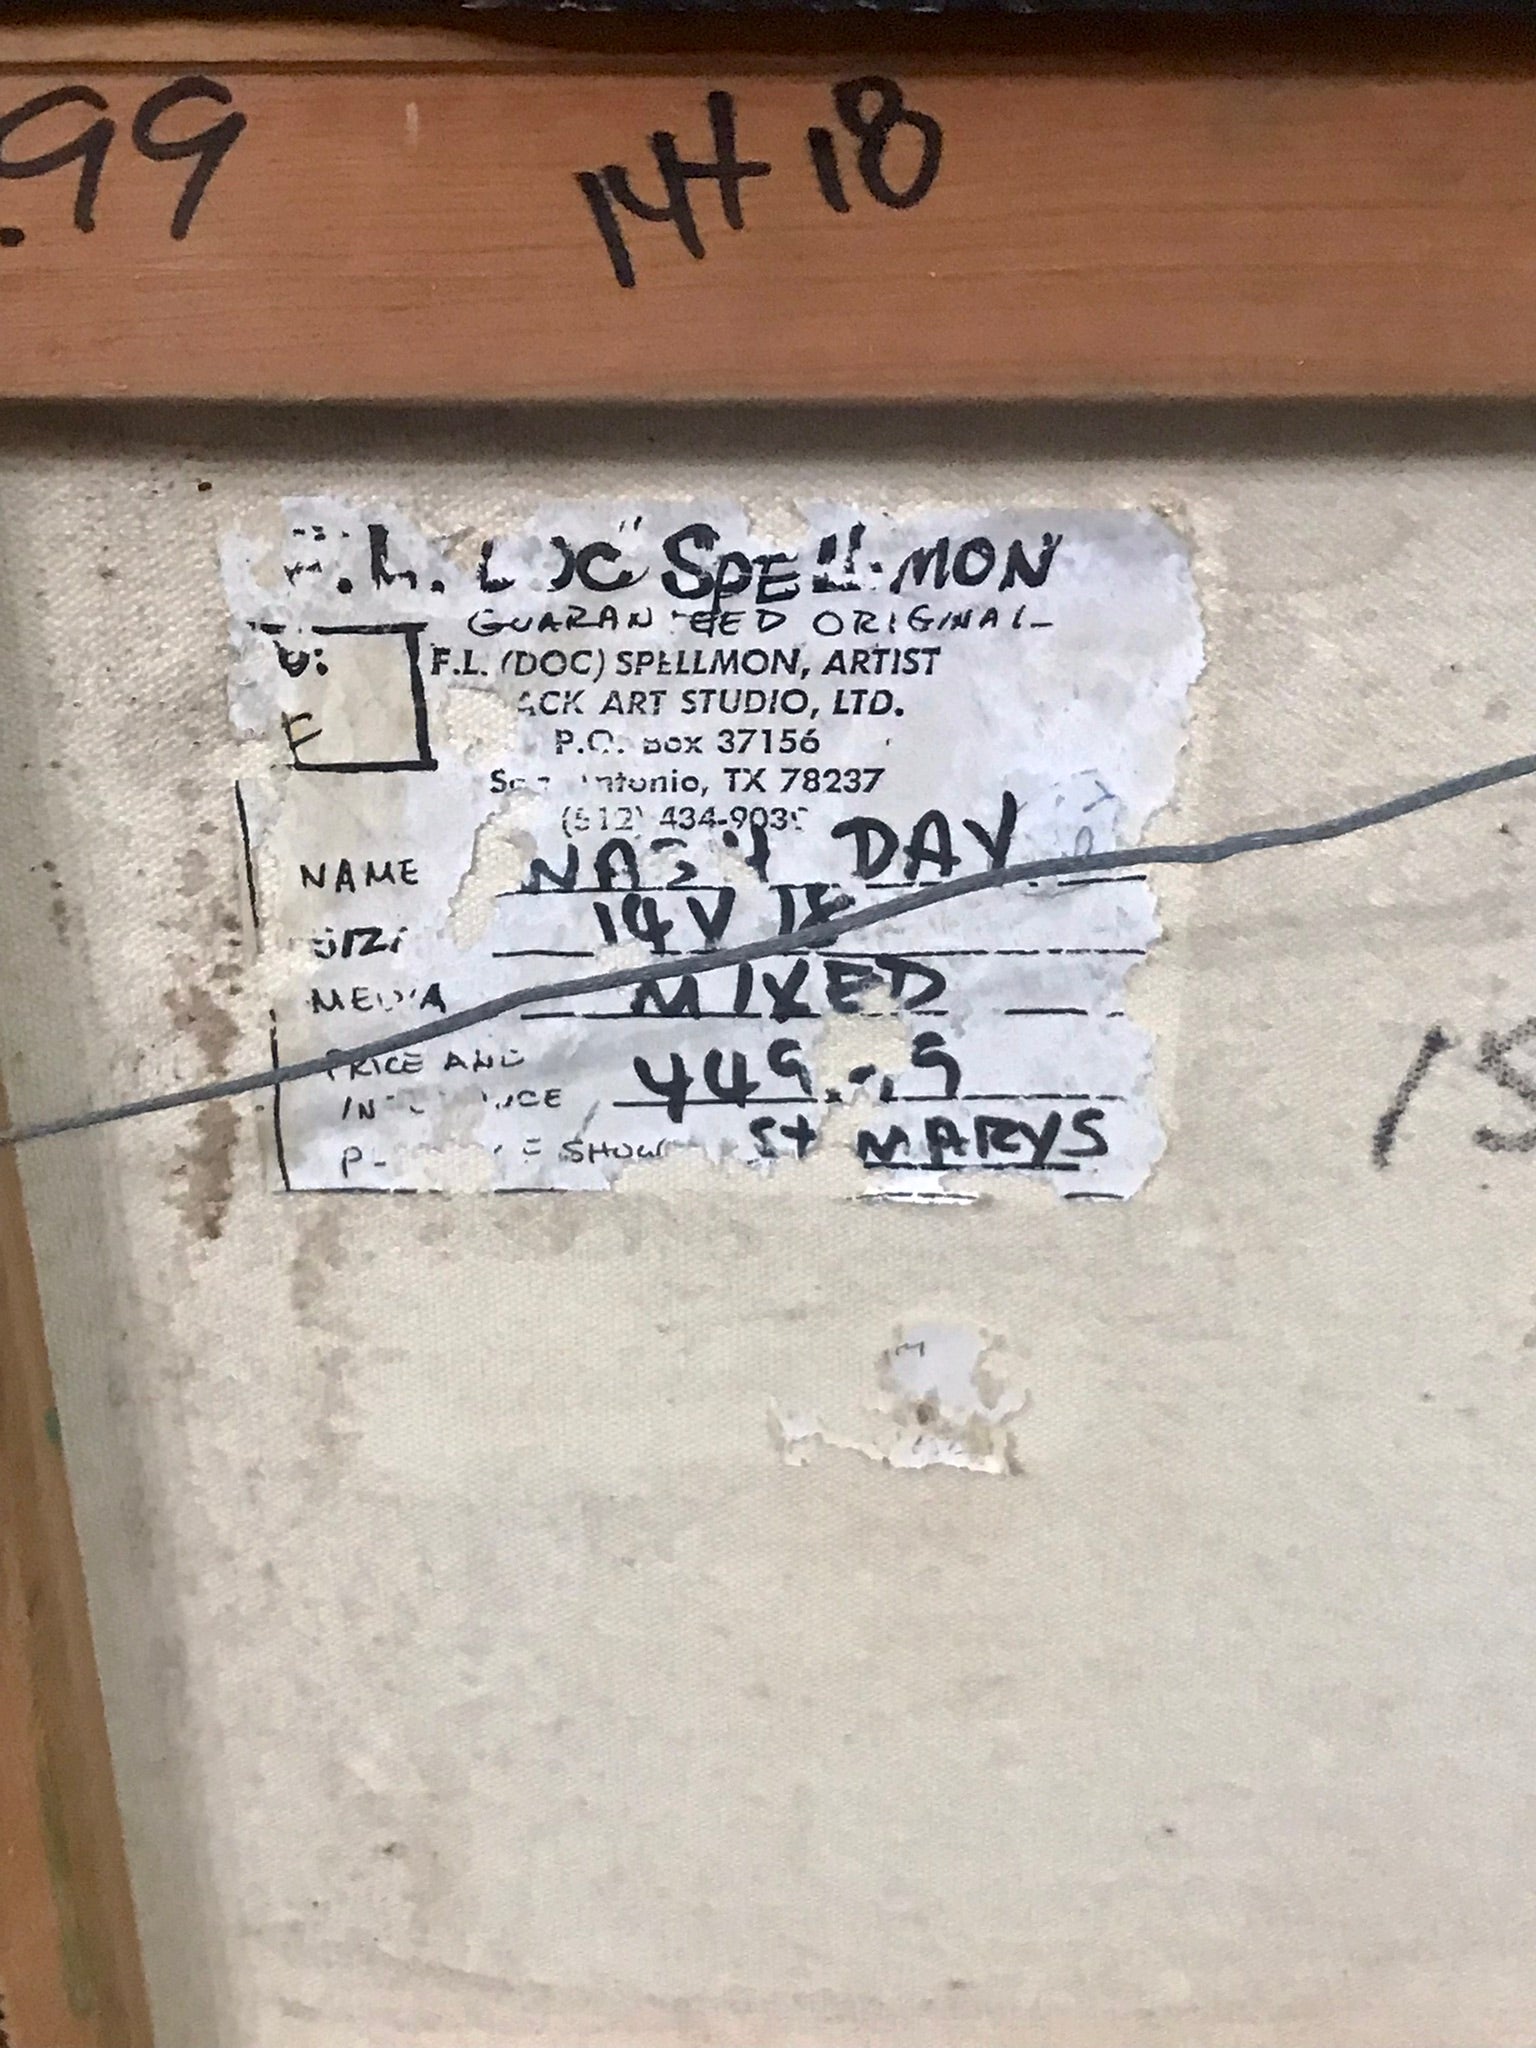 .99 14+18
"DOC" SPELLMON
GUARANTEED ORIGINAL
F.L. (DOC) SPELLMON, ARTIST
ACK ART STUDIO, LTD.
P.O. Box 37156
San Antonio, TX 78237
(512) 434-903
NAME DAY
SIZE 14 18
MEDIA MIXED
PRICE AND
449.99
SHOW St MARYS